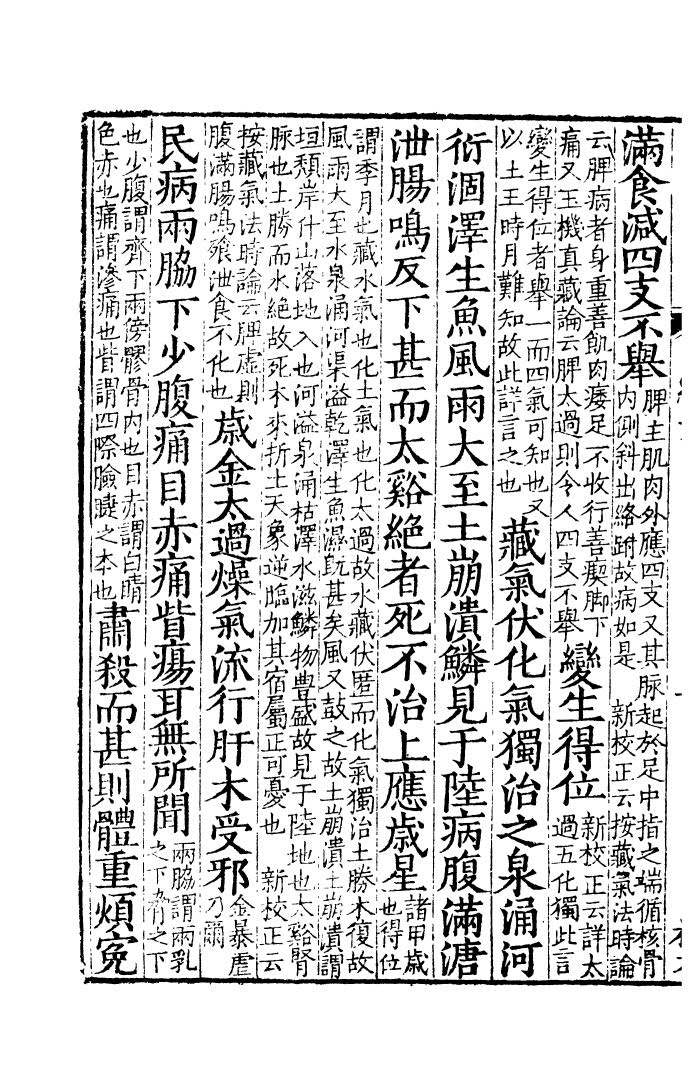 滿食減四支不舉脾主肌肉外應四支又其脉起於足中指之端循核骨
內側斜出絡跗故病如是　新校正云按藏氣法時論
云脾病者身重善飢肉痿足不收行善瘈脚下
痛又玉機真藏論云脾太過則令人四支不舉變生得位新校正云詳太
過五化獨此言
變生得位者舉一而四氣可知也又
以土王時月難知故此詳言之也藏氣伏化氣獨治之泉涌河
衍涸澤生魚風雨大至土崩潰鱗見于陸病腹滿溏
泄腸鳴反下甚而太谿絕者死不治上應歲星諸甲歲
也得位
謂季月也藏水氣也化土氣也化太過故水藏伏匿而化氣獨治土勝木復故
風雨大至水泉涌河渠溢乾澤生魚濕旣甚矣風又鼓之故土崩潰土崩潰謂
垣頹岸仆山落地入也河溢泉涌枯澤水滋鱗物豊盛故見于陸地也太谿腎
脉也土勝而水絕故死木來折土天象逆臨加其宿屬正可憂也　新校正云
按藏氣法時論云脾虛則
腹滿腸鳴飱泄食不化也歲金太過燥氣流行肝木受邪金暴虐
乃爾
民病兩脇下少腹痛目赤痛眥瘍耳無所聞兩脇謂兩乳
之下脅之下
也少腹謂齊下兩傍髎骨內也目赤謂白睛
色赤也痛謂滲痛也眥謂四際瞼睫之本也肅殺而甚則體重煩寃